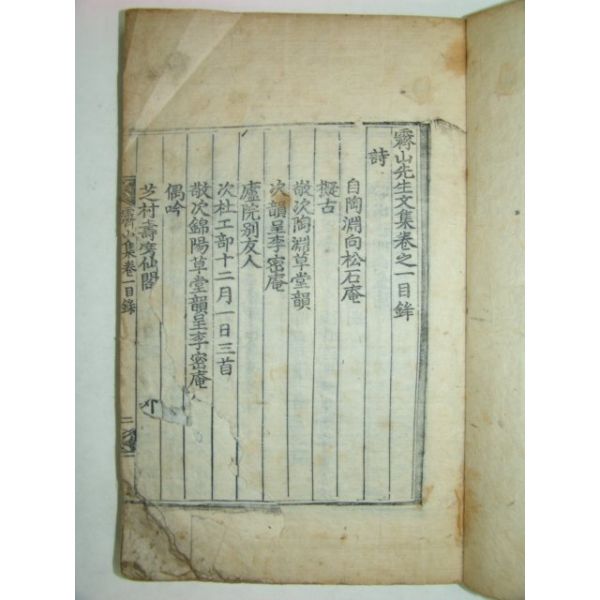 霽山先生文集卷之一目錄
詩
自陶淵向松石庵
擬古
敬次陶淵草堂韻
次韻呈李密庵
廬院別友人
次杜工部十二月一日三首
敬次錦陽草堂韻呈李密庵
偶吟
芝村壽仙閣
霽山集卷一目錄